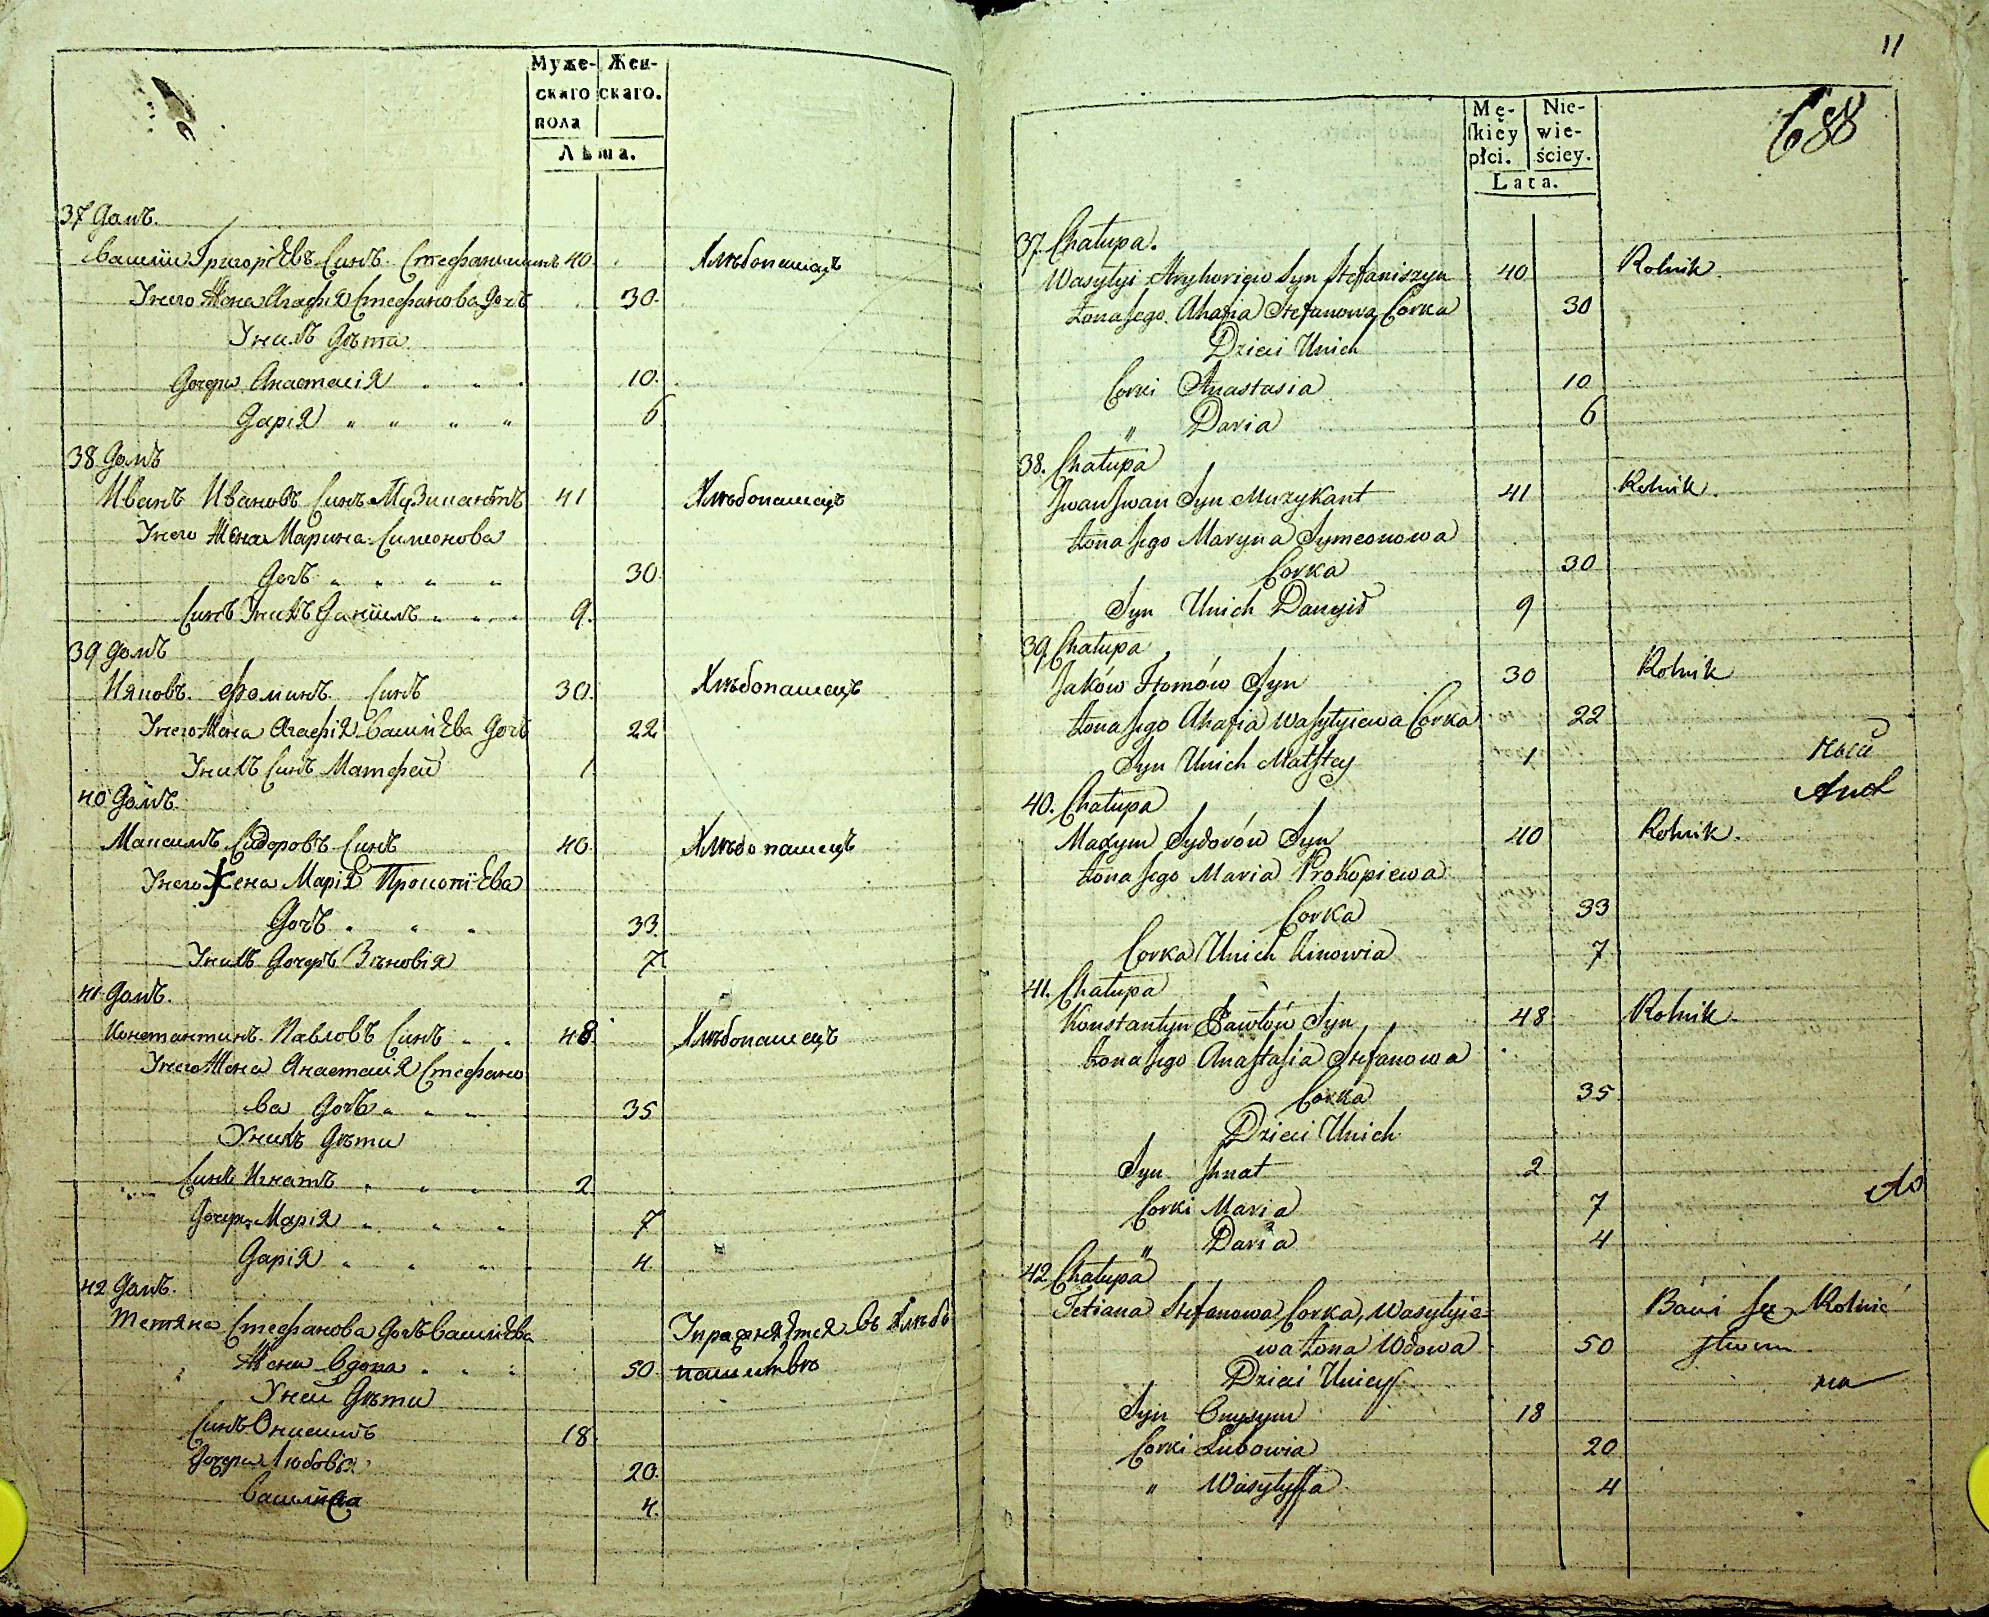 Муже- Жен-
скаго скаго.
пола
Лѣта.
37 Домъ.
Василiи Григорiевъ Синъ Стефанишинъ 40. Хлѣбопашецъ
Унего Жена Агафiя Стефанова Дочъ 30.
Унихъ Дѣти
Дочери Анастасiя " " 10.
Дарiя " " " " 6
38 Домъ
Иванъ Ивановъ Синъ Музикантъ 41 Хлѣбопашецъ
Унего Жена Марина Симеонова
Дочъ " " " " 30
Синъ Унихъ Данiилъ " " " 9.
39 Домъ
Ияковъ Фоминъ Синъ 30. Хлѣбопашецъ
Унего Жена Агафiя Василiева Дочъ 22
Унихъ Синъ Матфей 1
40 Домъ.
Максимъ Сидоровъ Синъ 40. Хлѣбопашецъ
Унего Жена Марiя Прокопiева
Дочъ " " " 33.
Унихъ Дочеръ Зѣновiя 7
41 Домъ.
Константинъ Павловъ Синъ " " 48. Хлѣбопашецъ
Унего Жена Анастасiя Стефано
ва Дочъ " " " 35
Унихъ Дѣти
Синъ Игнатъ " " " 2.
Дочери Марiя " " " 7
Дарiя " " " " 4.
42 Домъ.
Тетяна Стефанова Дочъ Василiева Упражняется въ Хлѣбо
Жена Вдова " " " 50. пашествѣ
Уней Дѣти
Синъ Онисимъ 18.
Дочери Любовiя 20.
Василиса 4.
11
688
Mę- Nie-
skiey wie-
płci. ściey.
Lata.
37. Chałupa.
Wasylyi Hryhoriew Syn Stefaniszyn 40 Rolnik.
Żona Jego Ahafia Stefanowa Corka 30
Dzieci Unich
Corki Anastasia 10
" Daria 6
38. Chałupa
Iwan Iwan Syn Muzykant 41 Rolnik.
Żona Jego Maryna Symeonowa
Corka 30
Syn Unich Danyił 9
39. Chałupa
Jaków Homów Syn 30 Rolnik
Żona Jego Ahafia Wasylyiewa Corka 22
Syn Unich Matftey 1
40. Chałupa
Maxym Sydorów Syn 40 Rolnik.
Żona Jego Maria Prokopiewa
Corka 33
Corka Unich Zinowia 7
41. Chałupa
Konstantyn Pawłów Syn 48 Rolnik
Żona Jego Anastasia Stefanowa
Corka 35
Dzieci Unich
Syn Ihnat 2
Corki Maria 7
" Daria 4
42 Chałupa
Tetiana Stefanowa Corka, Wasylyie= Bawi się Rolnic
wa Żona Wdowa 50 stwem
Dzieci Uniey
Syn Onysym 18
Corki Lubowia 20
" Wasylyssa 4